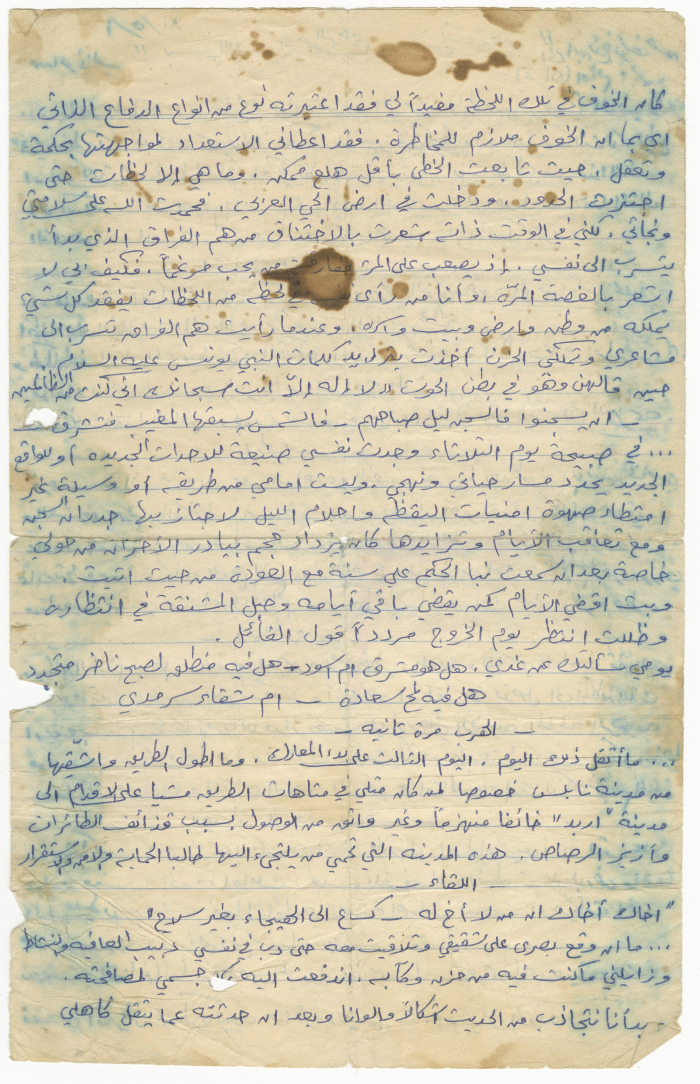 كان الخوف في تلك اللحظة مفيداً لي فقد اعتبرته نوع من انواع الدفاع الذاتي
اي بما ان الخوف ملازم للمخاطرة . فقد اعطاني الاستعداد لمواجهتها بحكمة
وتعقل . حيث تابعت الخطى بأقل هلع ممكن . وما هي إلا لحظات حتى
اجتزت الحدود . ودخلت في ارض الحي العربي . فحمدت الله على سلامتي
ونجاتي . لكني في الوقت ذاته شعرت بالاختناق من هم الفراق الذي بدأ
يتسرب الى نفسي . إذ يصعب على المرء من يحب مرغماً . فكيف اني لا
اشعر بالغصة المرّة . وأنا من رأى نفسه في لحظه من اللحظات يفقد كل شيء
يملكه من وطن وارض وبيت و . وعندما رأيت هم الفراق تسرب الى
مشاعري وتملكني الحزن أخذت بترديد كلمات النبي يونس عليه السلام
حين قالهن وهو في بطن الحوت " لا إله إلاّ انت سبحانك اني كنت من الظالمين
- ان يسجنوا فالسجن ليل صباحهم - فالشمس يسبقها المغيب فتشرق -
... في صبيحة يوم الثلاثاء وجدت نفسي صنيعة للاحداث الجديده أو للواقع
الجديد يحدد مسار حياتي ونهجي . وليست امامي من طريقه أو وسيلة غير
امتطاء صهوة امنيات اليقظه واحلام الليل لاجتاز بها جدران السجن
ومع تعاقب الأيام وتزايدها كان يزداد حجم بيادر الأحزان من حولي
خاصة بعد ان سمعت نبا الحكم علي سنة مع العودة من حيث اتيت .
وبت اقضي الأيام كمن يقضي باقي أيامه وحبل المشنقة في انتظاره
وظللت انتظر يوم الخروج مردداً قول القائل .
يومي سألتك عن غدي . هل هو مشرق ام اسود - هل فيه منطلق لصبح ناضر متجدد
هل فيه لمح سعادة - ام شقاء سرمدي
- الهرب مرة ثانيه -
... ما أثقل ذلك اليوم . اليوم الثالث على بدء المعارك . وما اطول الطريق واشقّها
من مدينة نابلس خصوصا لمن كان مثلي في متاهات الطريق مشيا على الاقدام الى
مدينة "اربد" خائفا منهزماً وغير واثق من الوصول بسبب قذائف الطائرات
وأزيز الرصاص . هذه المدينه التي تحمي من يلتجىء اليها طالبا الحماية والامن والاستقرار
- اللقاء -
"اخاك أخاك ان من لا أخ له - كساع الى الهيجاء بغير سلاح"
... ما ان وقع بصري على شقيقي وتلاقيت معه حتى دب في نفسي دبيب العافيه والنشاط
وزايلني ما كنت فيه من حزن وكآبه . اندفعت اليه جسمي لمصافحته .
بدأنا نتجاذب من الحديث اشكالاً والوانا وبعد ان حدثته عما يثقل كاهلي